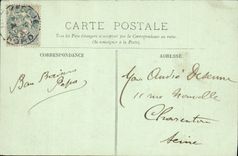 CARTE POSTALE
Tous les Pays étrangers n'acceptent pas la Correspondance au recto
(Se renseigner à la Poste).
CORRESPONDANCE
ADRESSE
Bon Baiser
Papa
André
11 rue
Charenton
Seine
NORD